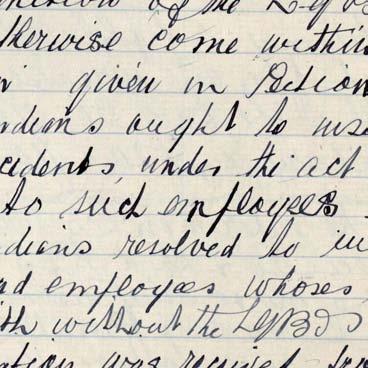 of the L.G.B
therwise come within
given in Section
rdians ought to insu
cidents under the act
to such employees
dians resolved to in
ad employees whose
ith without the LGBDs
ation was received fro